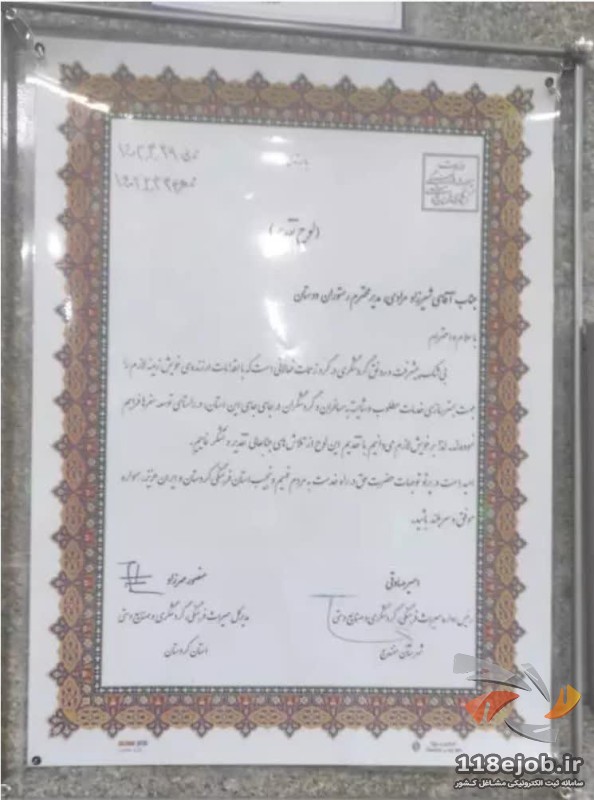 (لوح تقدیر)
جناب آقای شیرزاد مرادی، مدیر محترم رستوران دوستان
با سلام و احترام
بی شک پیشرفت و رونق گردشگری در گرو زحمات فعالانی است که با اقدامات ارزنده‌ی خویش زمینه لازم را
جهت بسترسازی خدمات مطلوب و شایسته به مسافران و گردشگران در جای جای این استان، در راستای توسعه سفرها فراهم
نموده‌اند. لذا بر خویش لازم می دانیم با تقدیم این لوح از تلاش های جنابعالی تقدیر و تشکر نماییم.
امید است در پرتو توجهات حضرت حق در راه خدمت به مردم فهیم و نجیب استان فرهنگی کردستان و ایران عزیز، همواره
موفق و سربلند باشید.
امیر صادقی
رئیس اداره میراث فرهنگی، گردشگری و صنایع دستی
شهرستان سنندج
منصور مهرزاد
مدیرکل میراث فرهنگی، گردشگری و صنایع دستی
استان کردستان
118ejob.ir
سامانه ثبت الکترونیکی مشاغل کشور